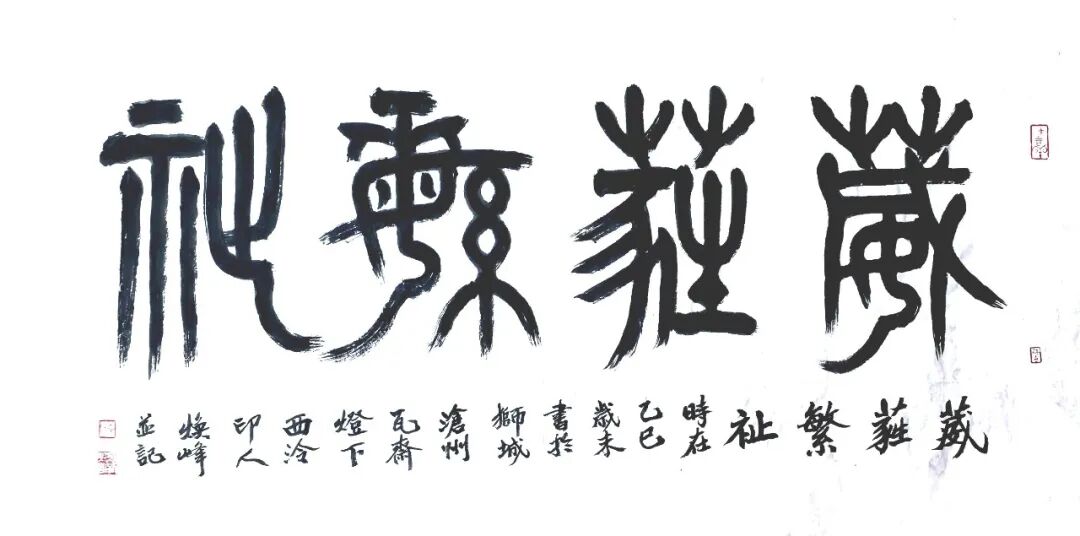 葳蕤繁祉
葳蕤繁祉
時在
乙巳
歲末
書於
獅城
滄州
瓦齋
燈下
西泠
印人
煥峰
並記